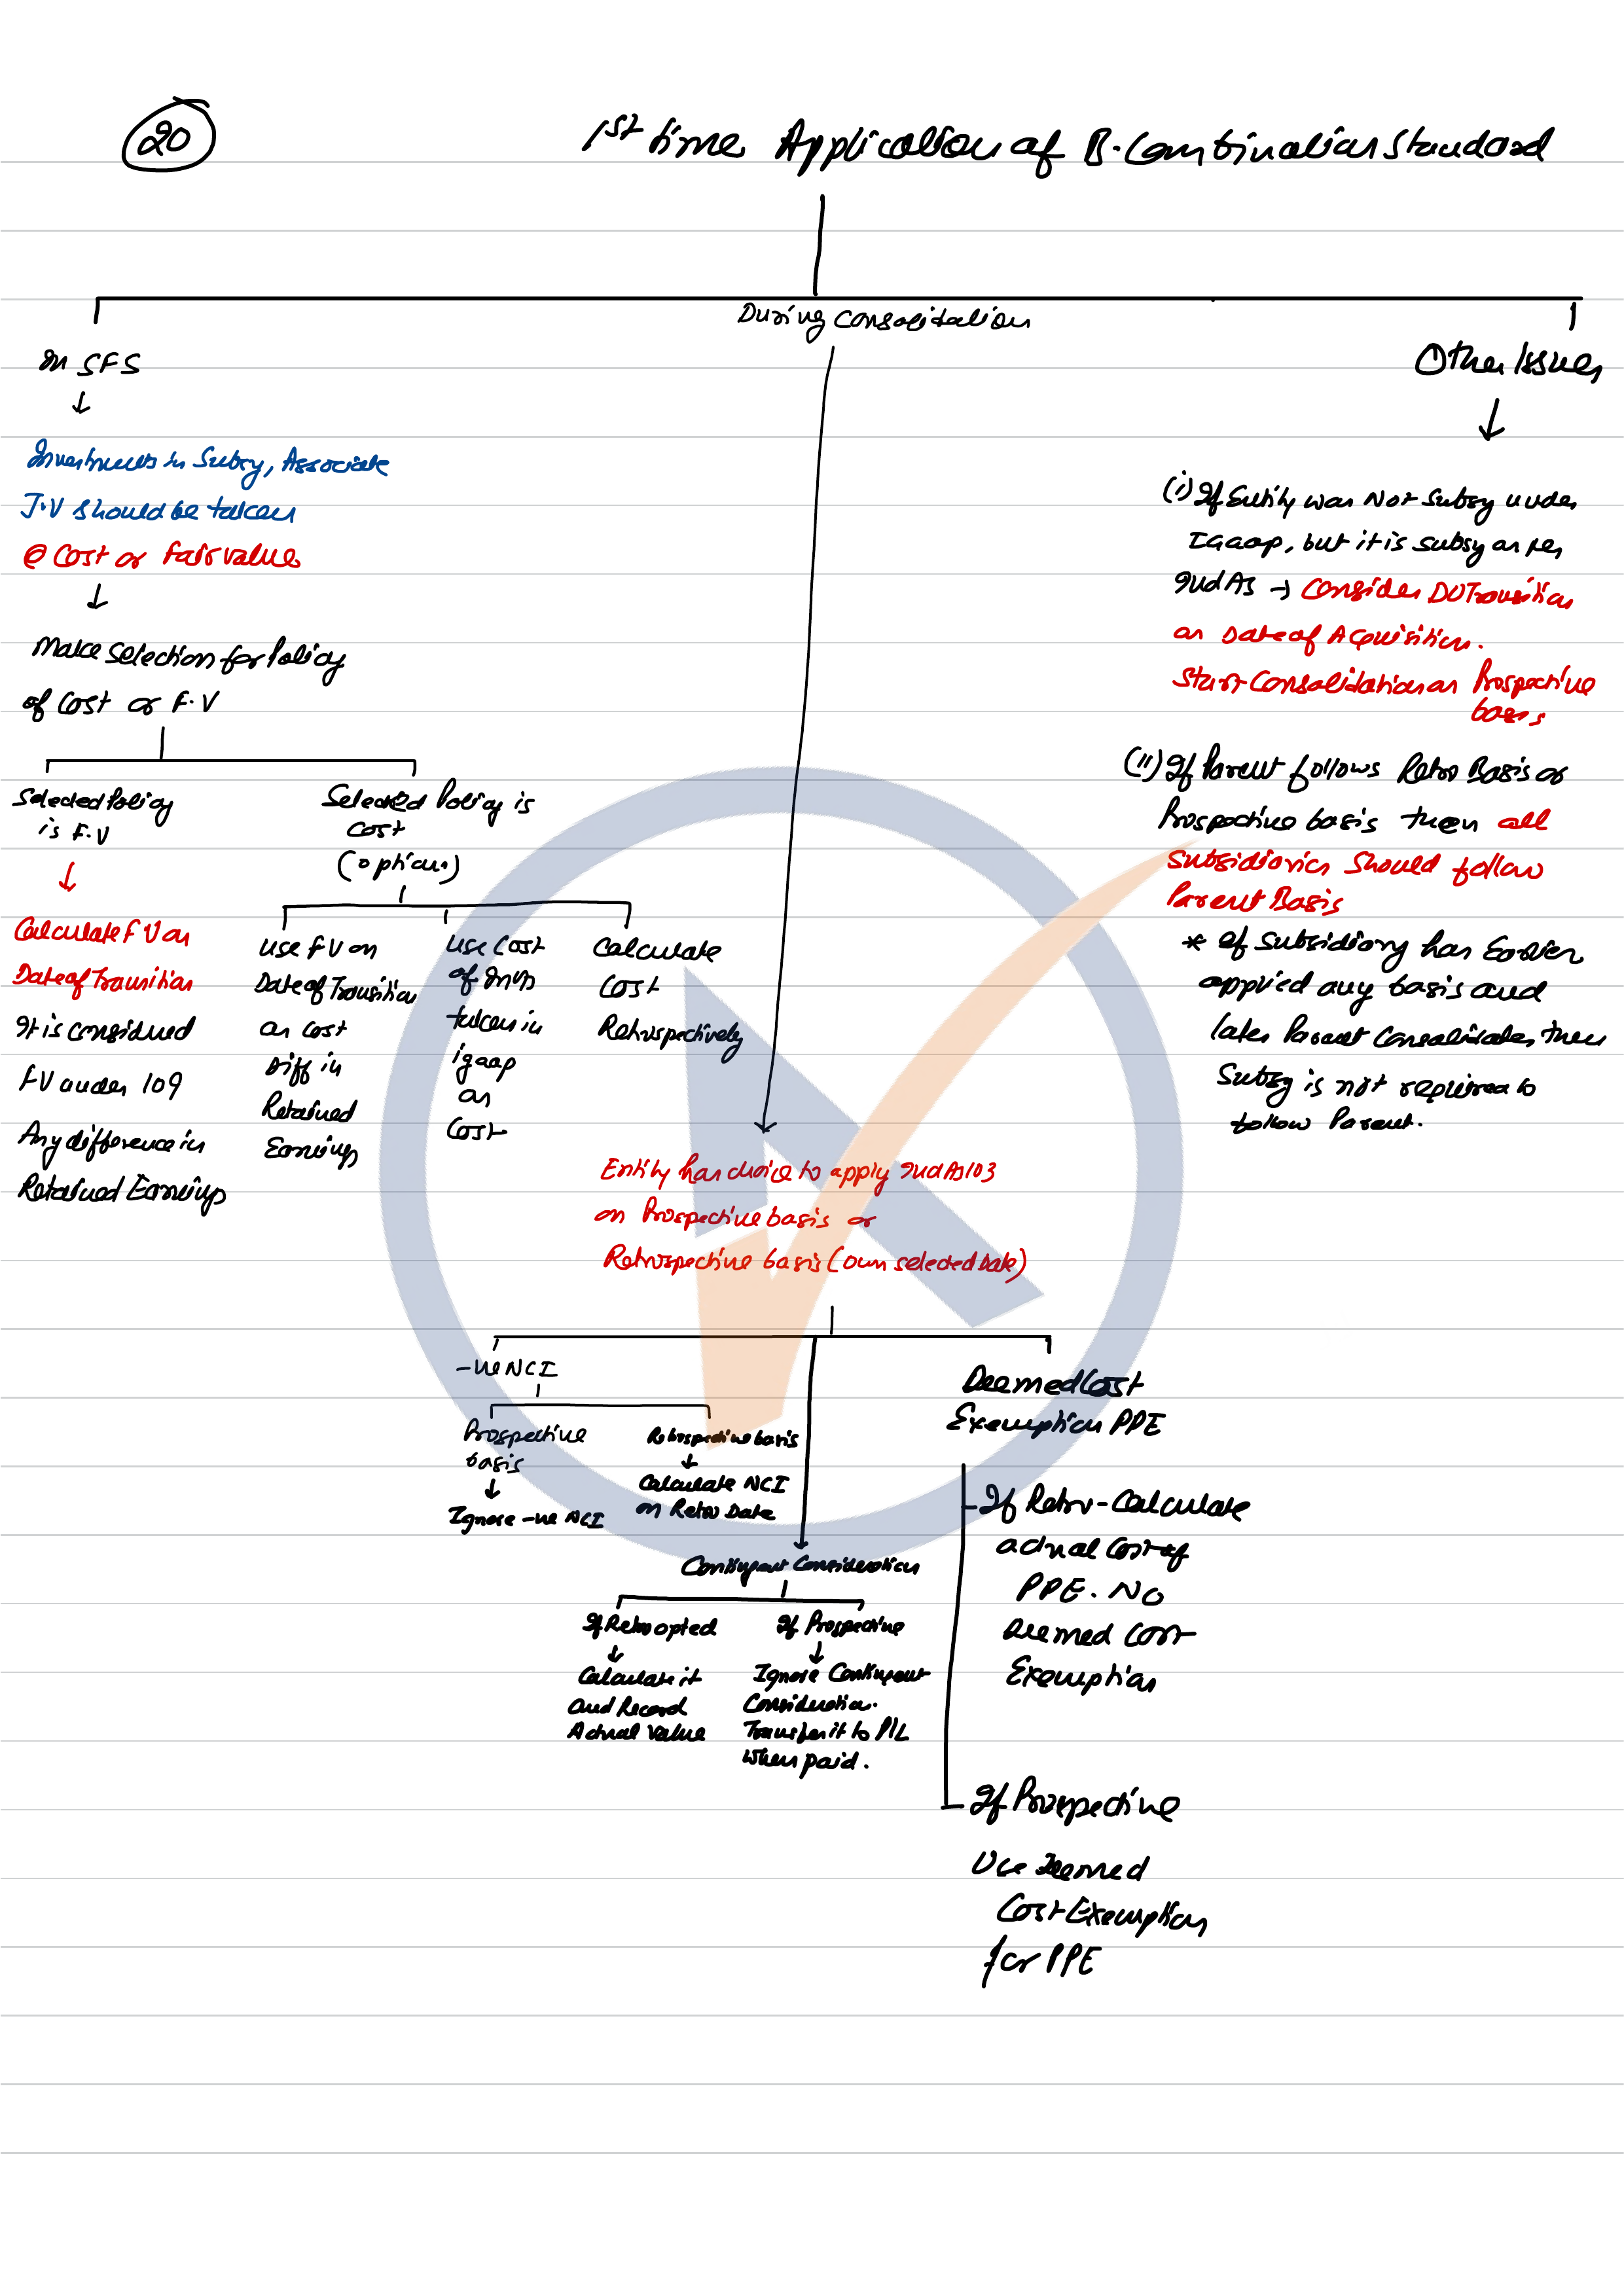 20
1st time Application of B. Combination Standard
During Consolidation
In SFS
Investments in Subsy, Associate
J.V should be taken
@ Cost or Fair value
Make selection for Policy
of Cost or F.V
Selected Policy
is F.V
Calculate FV on
Date of Transition
It is considered
FV under 109
Any difference in
Retained Earnings
Selected Policy is
Cost
(option)
use FV on
Date of Transition
as cost
Diff in
Retained
Earnings
use Cost
of Invs
taken in
igaap
as
Cost
Calculate
Cost
Retrospectively
Entity has choice to apply Ind AS 103
on Prospective basis or
Retrospective basis (own selected date)
-ve NCI
Prospective
basis
Ignore -ve NCI
Retrospective basis
Calculate NCI
on Retro Date
Contingent Consideration
If Retro opted
Calculate it
and Record
Actual Value
If Prospective
Ignore Contingent
Consideration.
Transfer it to P/L
when paid.
Deemed Cost
Exemption PPE
If Retro - Calculate
actual Cost of
PPE. No
Deemed Cost
Exemption
If Prospective
Use Deemed
Cost Exemption
for PPE
Other Issues
(i) If Entity was Not Subsy under
Igaap, but it is subsy as per
Ind AS → Consider DOTransition
as Date of Acquisition.
Start Consolidation on Prospective
basis
(ii) If Parent follows Retro Basis or
Prospective basis then all
Subsidiaries Should follow
Parent Basis
* If subsidiary has Earlier
applied any basis and
later Parent Consolidates, then
Subsy is not required to
follow Parent.